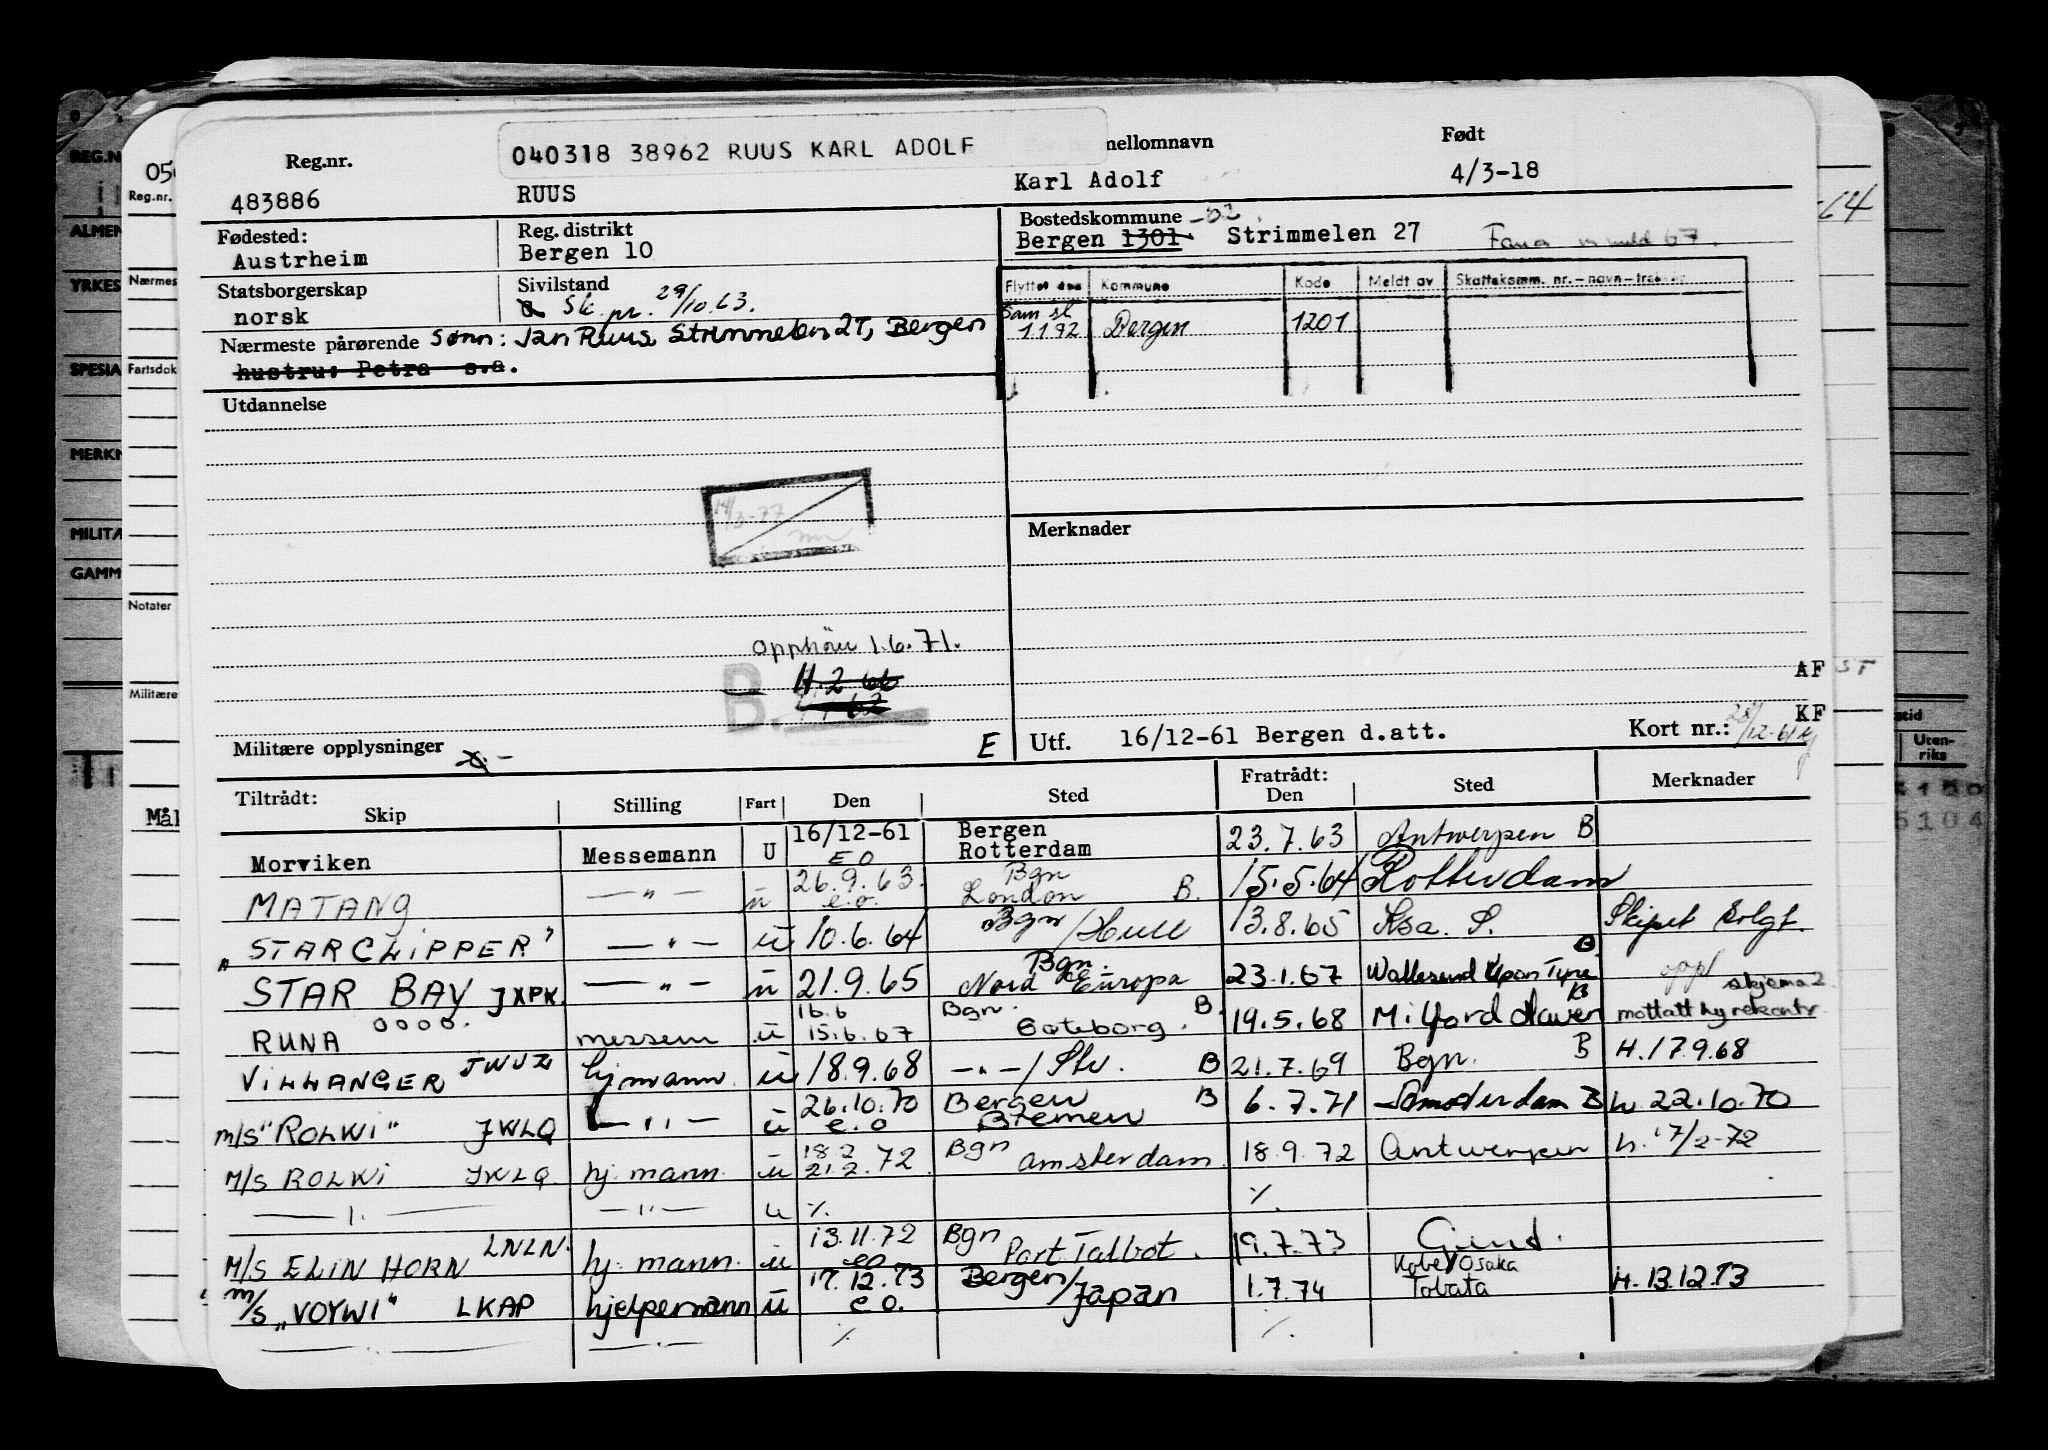 040318 38962 RUUS KARL ADOLF
Reg.nr.
mellomnavn
Født
483886
RUUS
Karl Adolf
4/3-18
Fødested:
Austrheim
Reg. distrikt
Bergen 10
Bostedskommune -02
Bergen 1301. Strimmelen 27
Fana 67.
Statsborgerskap
norsk
Sivilstand
sk. pr. 29/10.63.
Flyttet Kommune Kode Meldt av Skattekomm. nr.-navn-
Sam sl
1.1.72 Bergen 1201
Nærmeste pårørende Sønn: Jan Ruus, Strimmelen 27, Bergen
hustru: Petra s.a.
Utdannelse
14/3-77
Merknader
opphör 1.6.71.
H.2 66
B.
62
AF ST
KF
Militære opplysninger
E
Utf. 16/12-61 Bergen d.att.
Kort nr.:
Tiltrådt:
Skip Stilling Fart Den Sted
Fratrådt:
Den Sted Merknader
Morviken Messemann U 16/12-61 EO Bergen Rotterdam 23.7.63 Antwerpen B
MATANG —"— u 26.9.63. e.o. Bgn London B. 15.5.64 Rotterdam
"STARCLIPPER" —"— u 10.6.64 Bgn/Hull 13.8.65 Ksa. S. Skipet Solgt.
STAR BAY JXPK. —"— u 21.9.65 Bgn. Nord Europa 23.1.67 Wallsend Upon Tyne B oppl skjema 2
RUNA oooo. messem u 16.6 15.6.67 Bgn. Göteborg. B. 19.5.68 Milford Haven B mottatt hyrekontr.
VILLANGER JWUZ hj mann. u 18.9.68 —"—/Stv. B 21.7.69 Bgn. B H.17.9.68
m/s "ROLWI" JWLQ —"— u 26.10.70 e.o Bergen Bremen B 6.7.71 Amsterdam B h. 22.10.70
M/S ROLWI JWLQ hj. mann. u 18.2 21.2.72 Bgn amsterdam. 18.9.72 Antwerpen h. 17/2-72
—"— —"— u ٪ ٪
M/S ELIN HORN LNLN. hj. mann. u 13.11.72 eo Bgn Port Talbot. 19.7.73 Gend.
m/s "VOYWI" LKAP hjelpemann u 17.12.73 e.o. Bergen/Japan 1.7.74 Kobe/Osaka Tobata H. 13.12.73
—"— —"— ٪ ٪
REG.N
ALMEN
YRKES
SPESIA
MERKN
MILITÆ
GAMM
Reg.nr.
Nærmes
Fartsdok
Notater
Militære
Mål
-64
Uten-
riks
5104